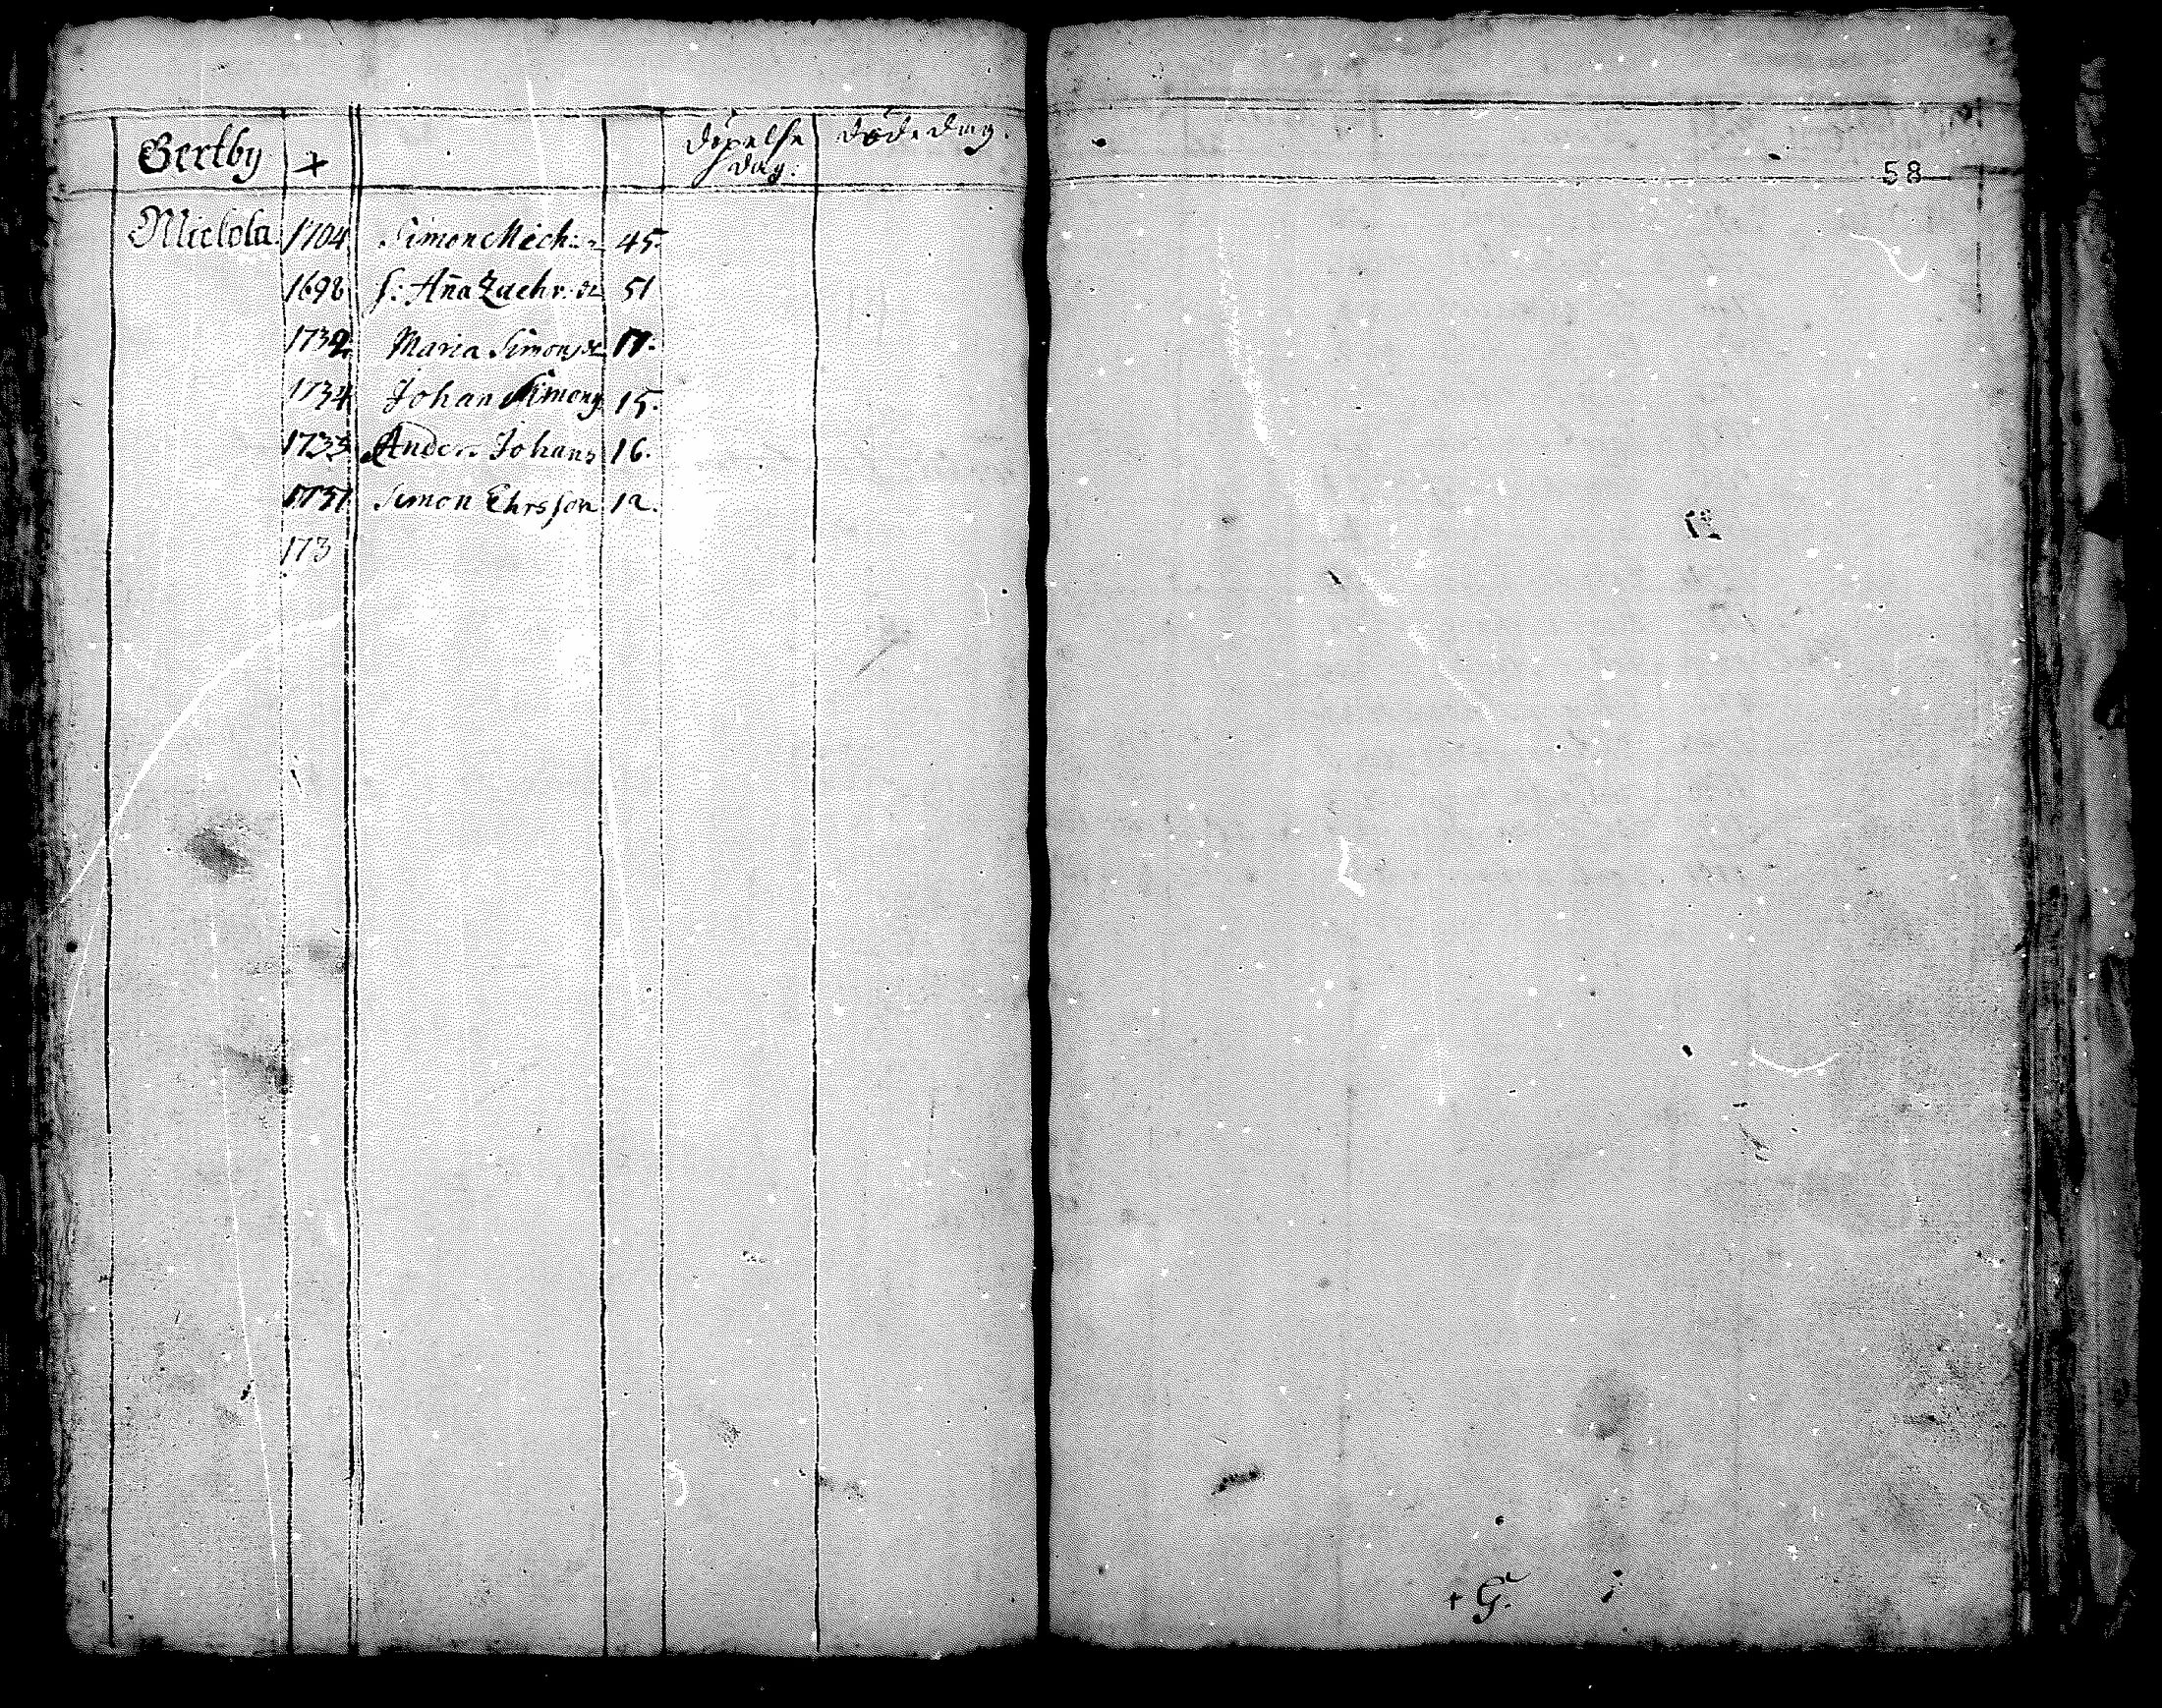 Gertby + döpelse dag: döde dag.
58
Mickola. 1704 Simon Mich: 45.
1698 h: Aña Zachr: dr 51
1732 Maria Simons dr 17.
1734 Johan Simons 15.
1733 Anders Johans 16.
1737 Simon Ehrsson 12.
173
+ G.